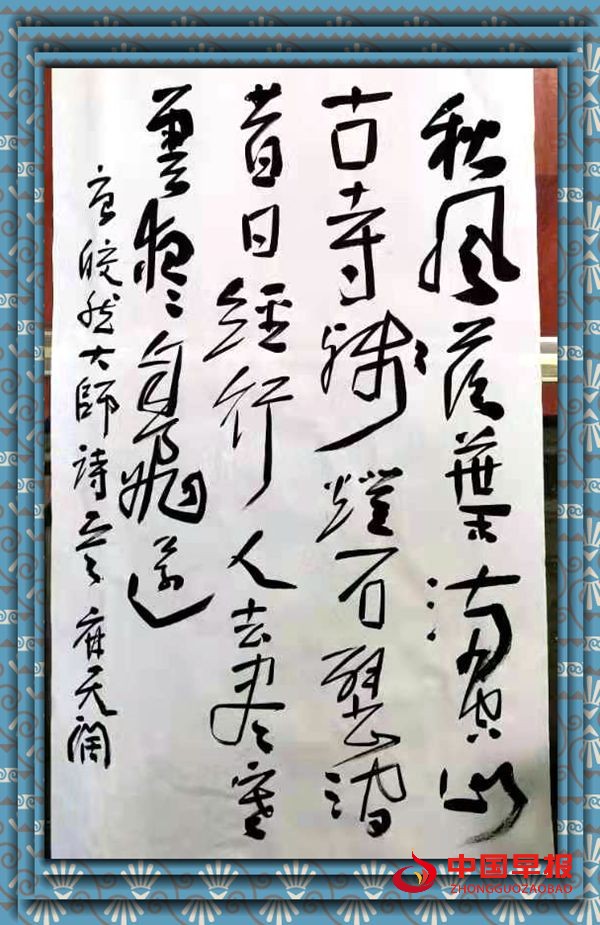 秋風落葉滿空山
古寺殘燈石壁間
昔日經行人去盡寒
雲夜々自飛還
唐皎然大師詩 麻天闊
中国早报
ZHONGGUOZAOBAO